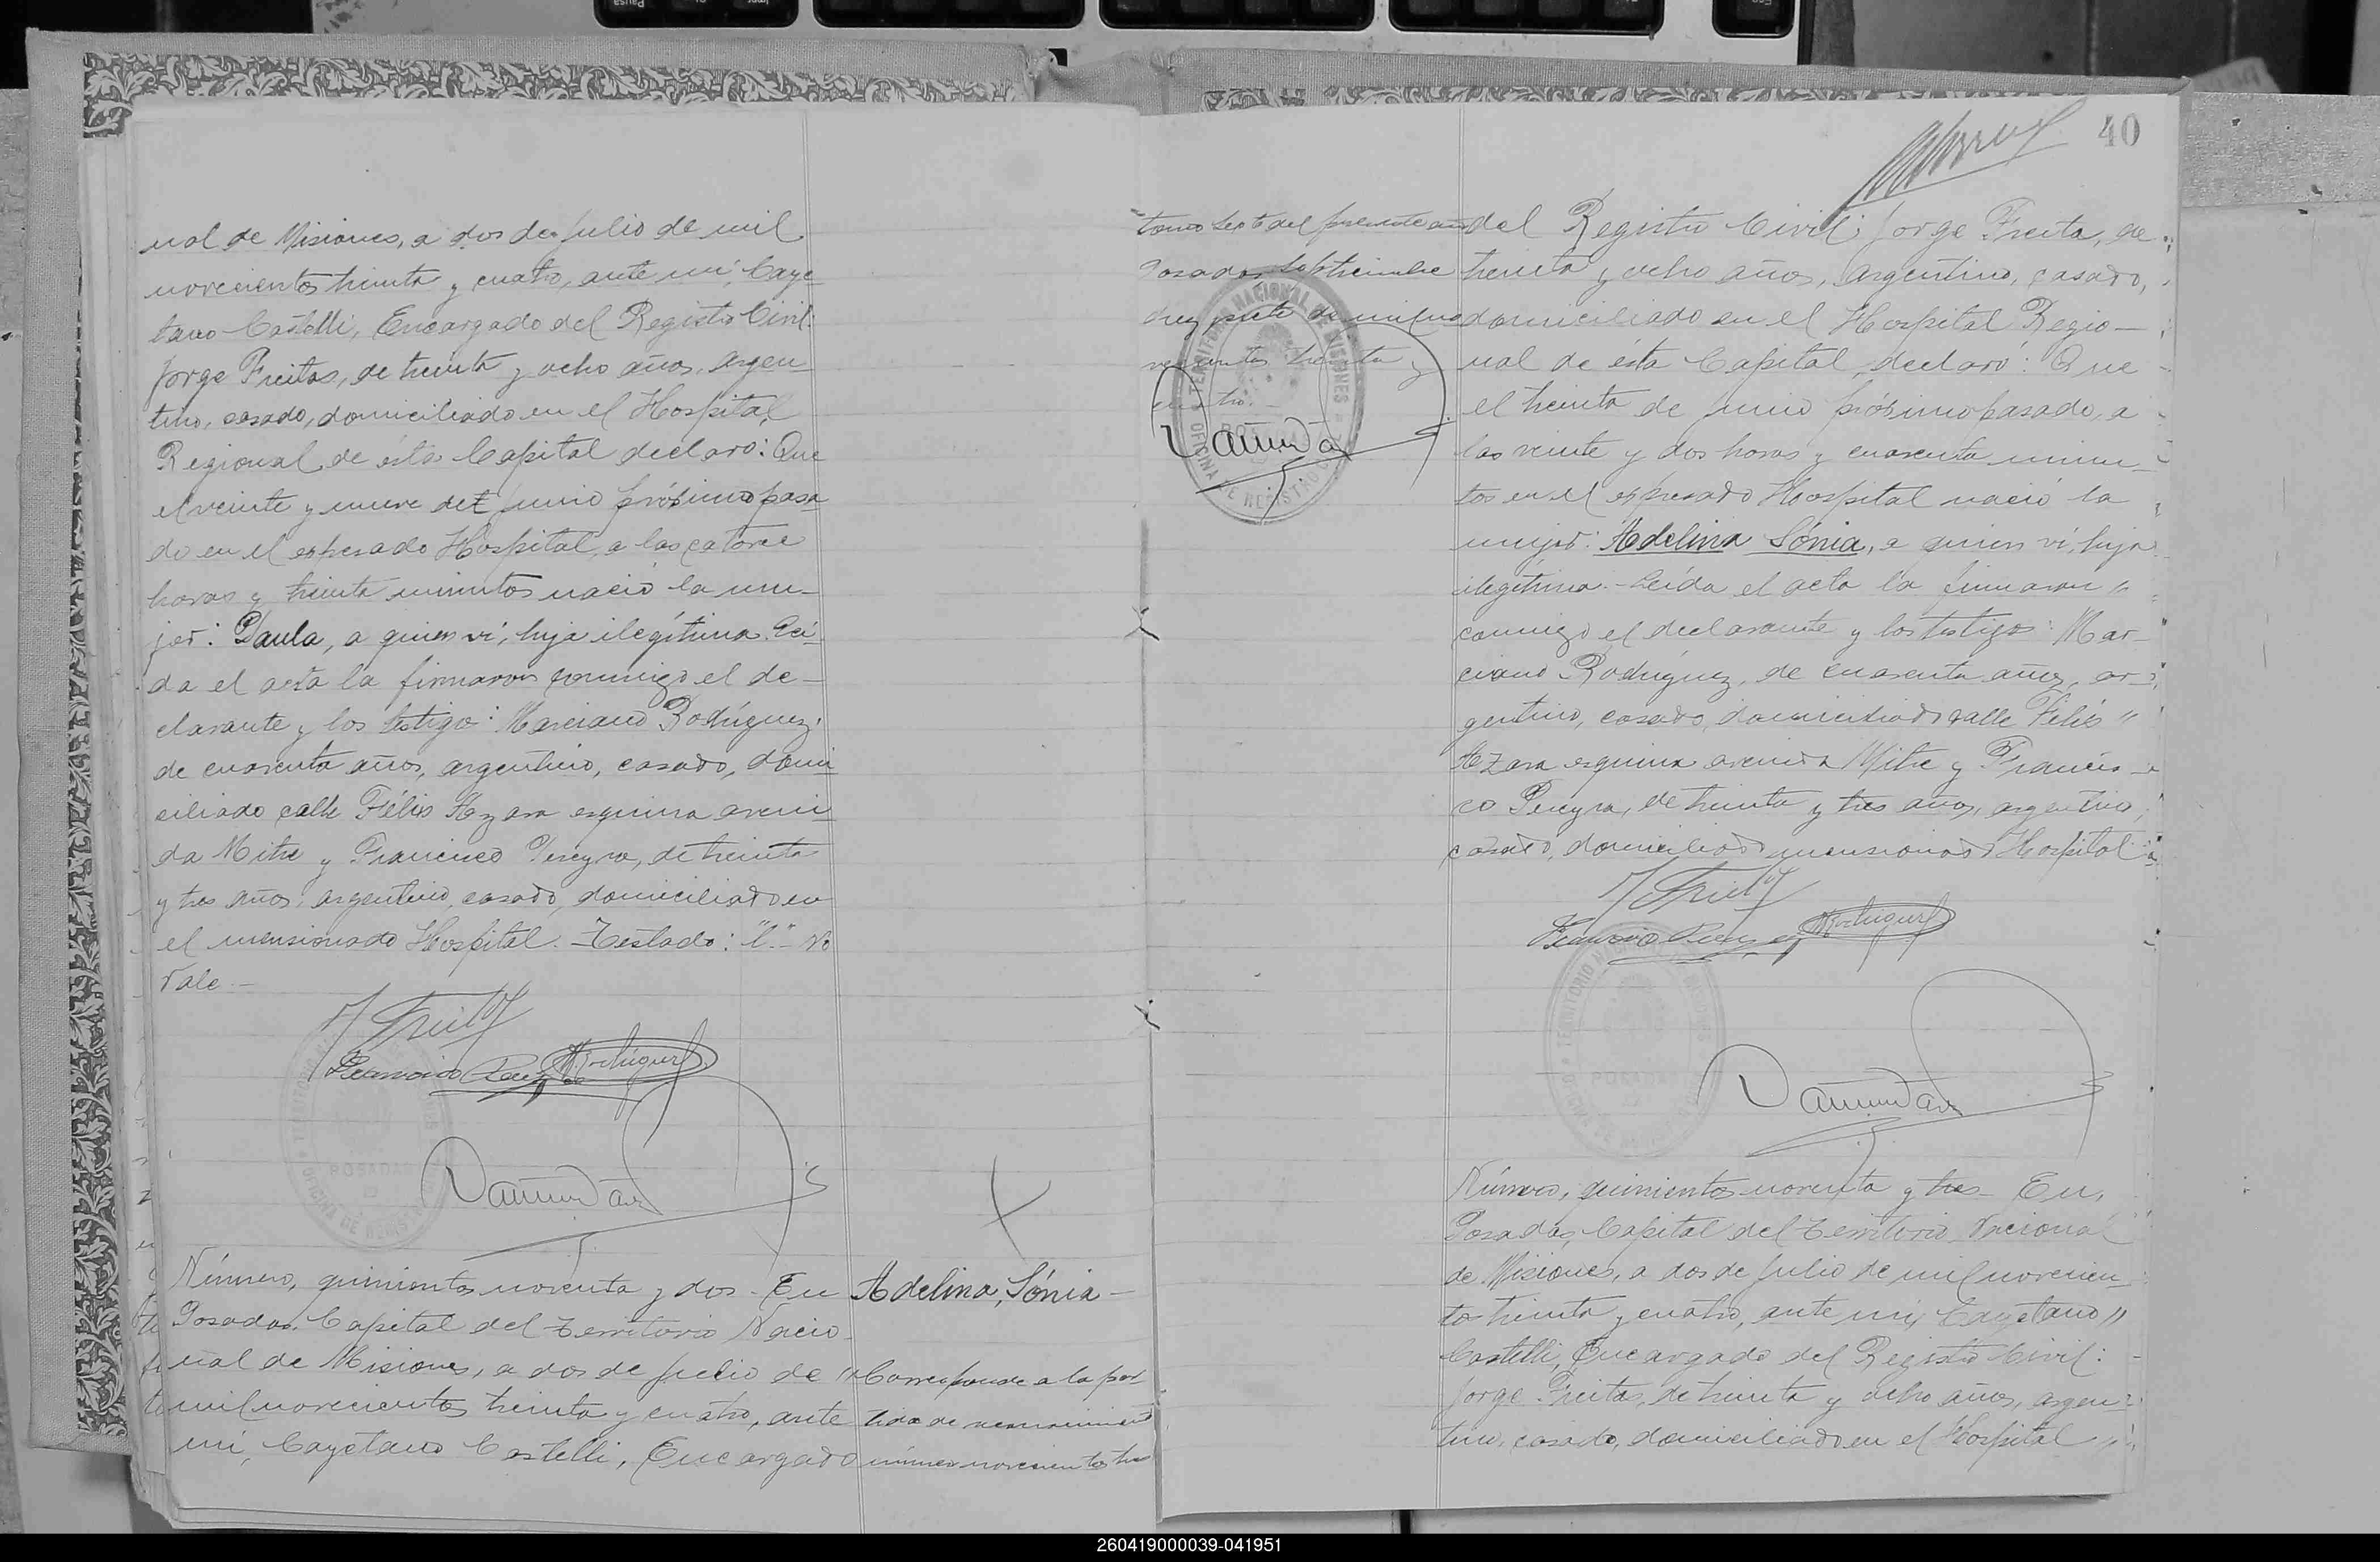 nal de Misiones, a dos de julio de mil
novecientos treinta y cuatro, ante mí, Caye
tano Castelli, Encargado del Registro Civil:
Jorge Freitas, de treinta y ocho años, argen
tino, casado, domiciliado en el Hospital
Regional de ésta Capital declaro: Que
el veinte y nueve del junio próximo pasa
do en el expresado Hospital, a las catorce
horas y treinta minutos nació la mu-
jer: Paula, a quien ví, hija ilegítima. Leí-
da el acta la firmaron conmigo el de-
clarante y los testigo: Marciano Rodríguez,
de cuarenta años, argentino, casado, domi
ciliado calle Félix Azara esquina aveni
da Mitre y Francisco Pereyra, de treinta
y tres años, argentino, casado, domiciliado en
el mensionado Hospital. Testado: "l." - No
vale.-
Número, quinientos noventa y dos - En
Posadas, Capital del Territorio Nacio-
nal de Misiones, a dos de julio de "
mil novecientos treinta y cuatro, ante
mí, Cayetano Castelli, Encargado
Adelina, Sónia -
Corresponde a la par
tida de
número novecientos tres
40
tomo sexto del presente año
Posadas, Septiembre
diez y siete de mil no
vecientos treinta y
cuatro.-
TERRITORIO NACIONAL DE MISIONES
OFICINA DE REGISTRO
del Registro Civil: Jorge Freita, de
treinta y ocho años, argentino, casado,
domiciliado en el Hospital Regio-
nal de ésta Capital, declaró: Que
el treinta de junio próximo pasado, a
las veinte y dos horas y cuarenta minu-
tos en el expresado Hospital nació la
mujer: Adelina Sónia, a quien ví, hija
ilegítima.- Leída el acta la firmaron "
conmigo el declarante y los testigos: Mar-
ciano Rodríguez, de cuarenta años, ar-
gentino, casado, domiciliado calle Félix "
Azara esquina avenida Mitre y Francis-
co Pereyra, de treinta y tres años, argentino,
casado, domiciliado mensionado Hospital
POSADAS
Número, quinientos noventa y tres - En,
Posadas, Capital del Territorio Nacional
de Misiones, a dos de julio de mil novecien
tos treinta y cuatro, ante mí, Cayetano "
Castelli, Encargado del Registro Civil:
Jorge Freitas, de treinta y ocho años, argen-
tino, casado, domiciliado en el Hospital "
260419000039-041951